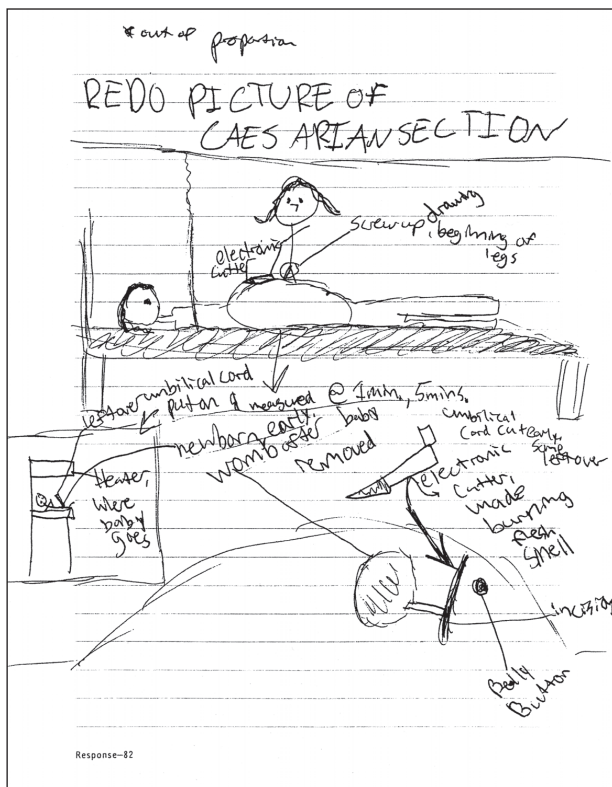 *out of proportion
REDO PICTURE OF
CAESARIAN SECTION
electronic
cutter
screw up drawing
, beginning of
legs
leftover umbilical cord
put on & measured @ 1 min., 5 mins.
newborn early.
womb after
baby
removed
Heater,
where
baby
goes
umbilical
cord cut early,
some
leftover
electronic
cutter,
made
burning
flesh
smell
incision
Belly
Button
Response—82